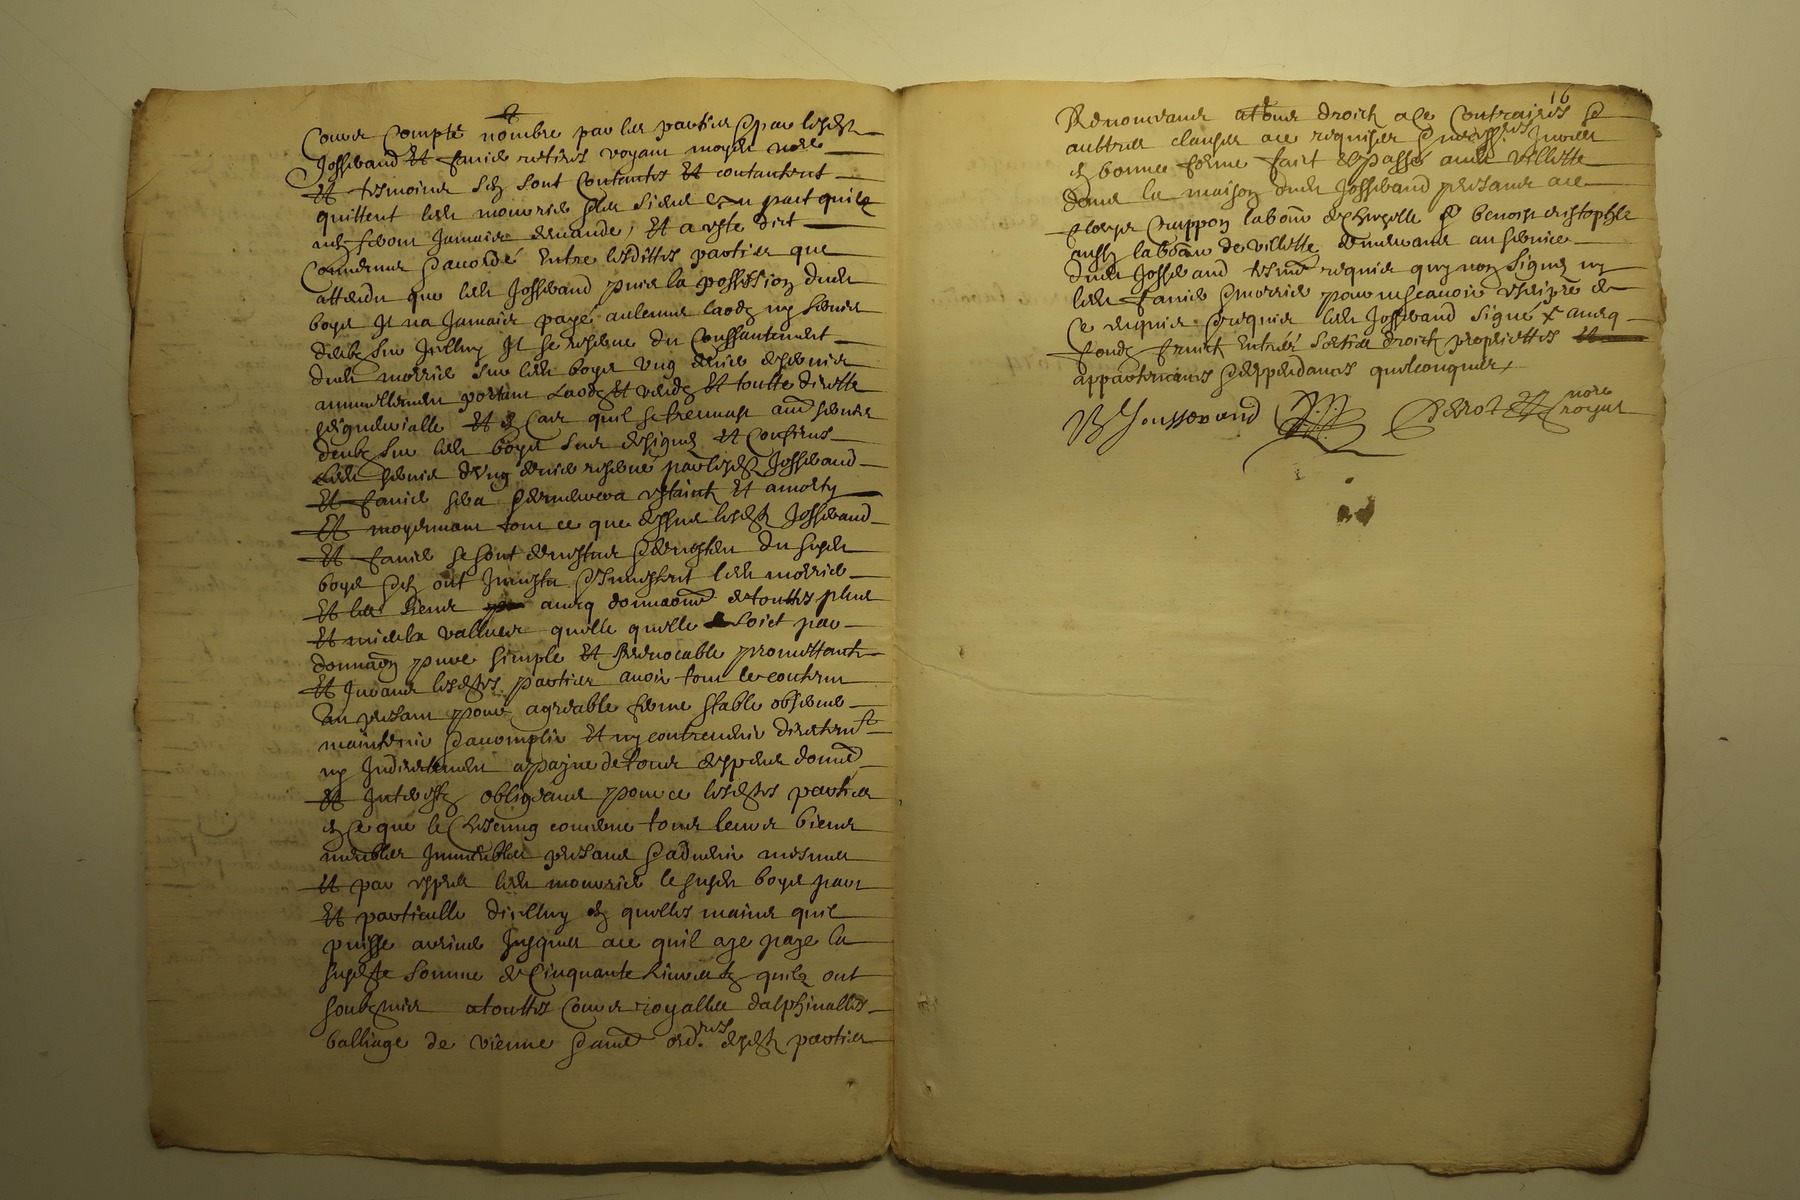 Cours compté nombré par les parties & par lesd
Josserand et faure retirés voyant moyen nore
et tesmoins sen sont contantés et contantent
quittent led mourrie & les siens en part quilz
nen feront jamais demande, Et a este dit
Convenu & accordé entre lesdittes parties que
attendu que led Josserand puis la possession dud
boys Il na Jamais payé aulcuns laodz ny servis
deubz sur Icelluy Il se reserve du consantement
dud morrie sur led boys ung denier de servis
annuellement portant laodz et vendz et toutte directe
seigneurialle et en cas quil se treuvast aud servis
deubz sur led boys sus designé et confiné
led servis dung denier reservé par lesd Josserand
et faure sera & demeurera estaint et amorty
et moyennant tout ce que dessus lesd Josserand
et faure se sont devestus & devestent du susd
boys & en ont Investu & Investent led morrie
et les siens avecq donnaon de touttes plus
et mieulx vallues quelle quelle soict par
donnaon pure simple et Irrevocable promettantz
et Jurans lesdtes parties avoir tout le contenu
au present pour agreable ferme stable observer
maintenir & accomplir et ny contrevenir directemt
ny Indirectement a payne de tous despens domes
et Interestz obligeans pour ce lesdtes parties
en ce que le chescung concerne tous leurs biens
meubles Immeubles presans & advenir mesmes
et par expres led mourrie le susd boys part
et particulle dicelluy en quelles mains quil
puisse arriver Jusques a ce quil aye paye la
susdte somme de cinquante livres quilz ont
soubzmis a touttes cours royalles dalphinalles
balliage de vienne & aues ordres desd parties
16
Renonceans a tous droictz a ce contraires &
aultres clauses a ce requises & necessres Jurees
en bonne forme faict & passé aud Villette
dans la maison dud Josserand presans a ce
Cuppon labour & benoist cristophle
aussy labour de villette demeurans au service
dud Josserand tesmes requis quy non signé ny
led faure & morrie pour ne scavoir escripre de
ce enquis & requis led Josserand signé x avecq
fondz fruict entrées sorties droictz proprietes
appartenances & despendances quelconques
B Jousserand
Perrot nore royal